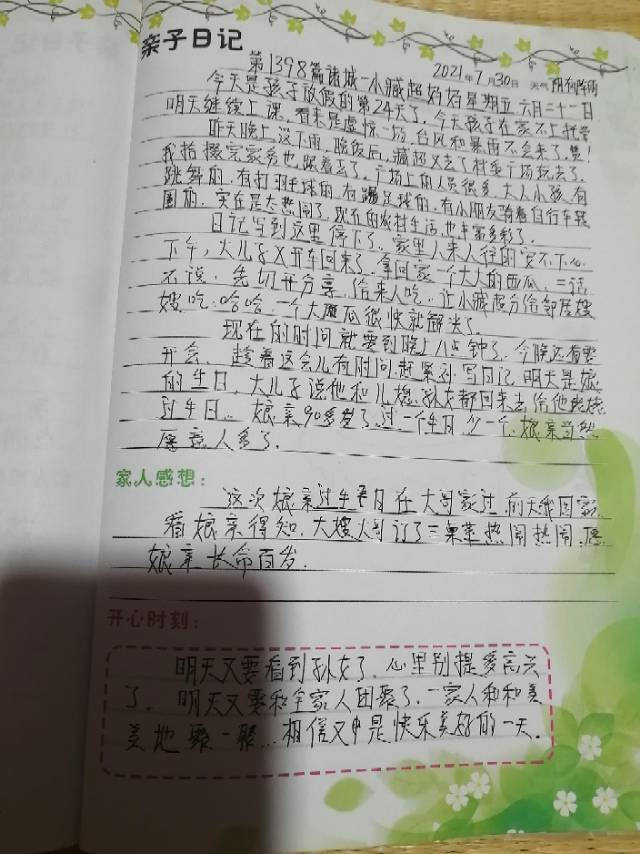 亲子日记
2021年7月30日 天气阴有阵雨
第1398篇诸城一小臧超妈妈星期五六月二十一日
今天是孩子放假的第24天了,今天孩子在家不上托管
明天继续上课,看来是虚惊一场,台风和暴雨不会来了,赞!
昨天晚上没下雨,晚饭后,臧超又去了村委广场玩去了,
我拾掇完家务也跟着去了,广场上的人员很多,大人小孩,有
跳舞的,有打羽毛球的,有踢足球的,有小朋友骑着自行车转
圈的,实在是太热闹了,现在的农村生活也丰富多彩了。
日记写到这里停下了,家里人来人往的安不下心
下午,大儿子又开车回来了,拿回家一个大大的西瓜,二话
不说,先切开分享,给来人吃,让小臧超分给邻居嫂
嫂吃,哈哈,一个大西瓜很快就解决了。
现在的时间就要到晚上八点钟了,今晚还有要
开会,趁着这会儿有时间,赶紧补写日记,明天是娘
的生日,大儿子说他和儿媳,孙女都回来去给他姥姥
过生日。娘亲90多岁了,过一个生日少一个,娘亲当然
愿意人多了。
家人感想:
这次娘亲过生日在大哥家过,前天我回家
看娘亲得知,大嫂大哥订了三桌菜热闹热闹,愿
娘亲长命百岁。
开心时刻:
明天又要看到孙女了,心里别提多高兴
了,明天又要和全家人团聚了,一家人和和美
美地聚一聚…相信又会是快乐美好的一天。